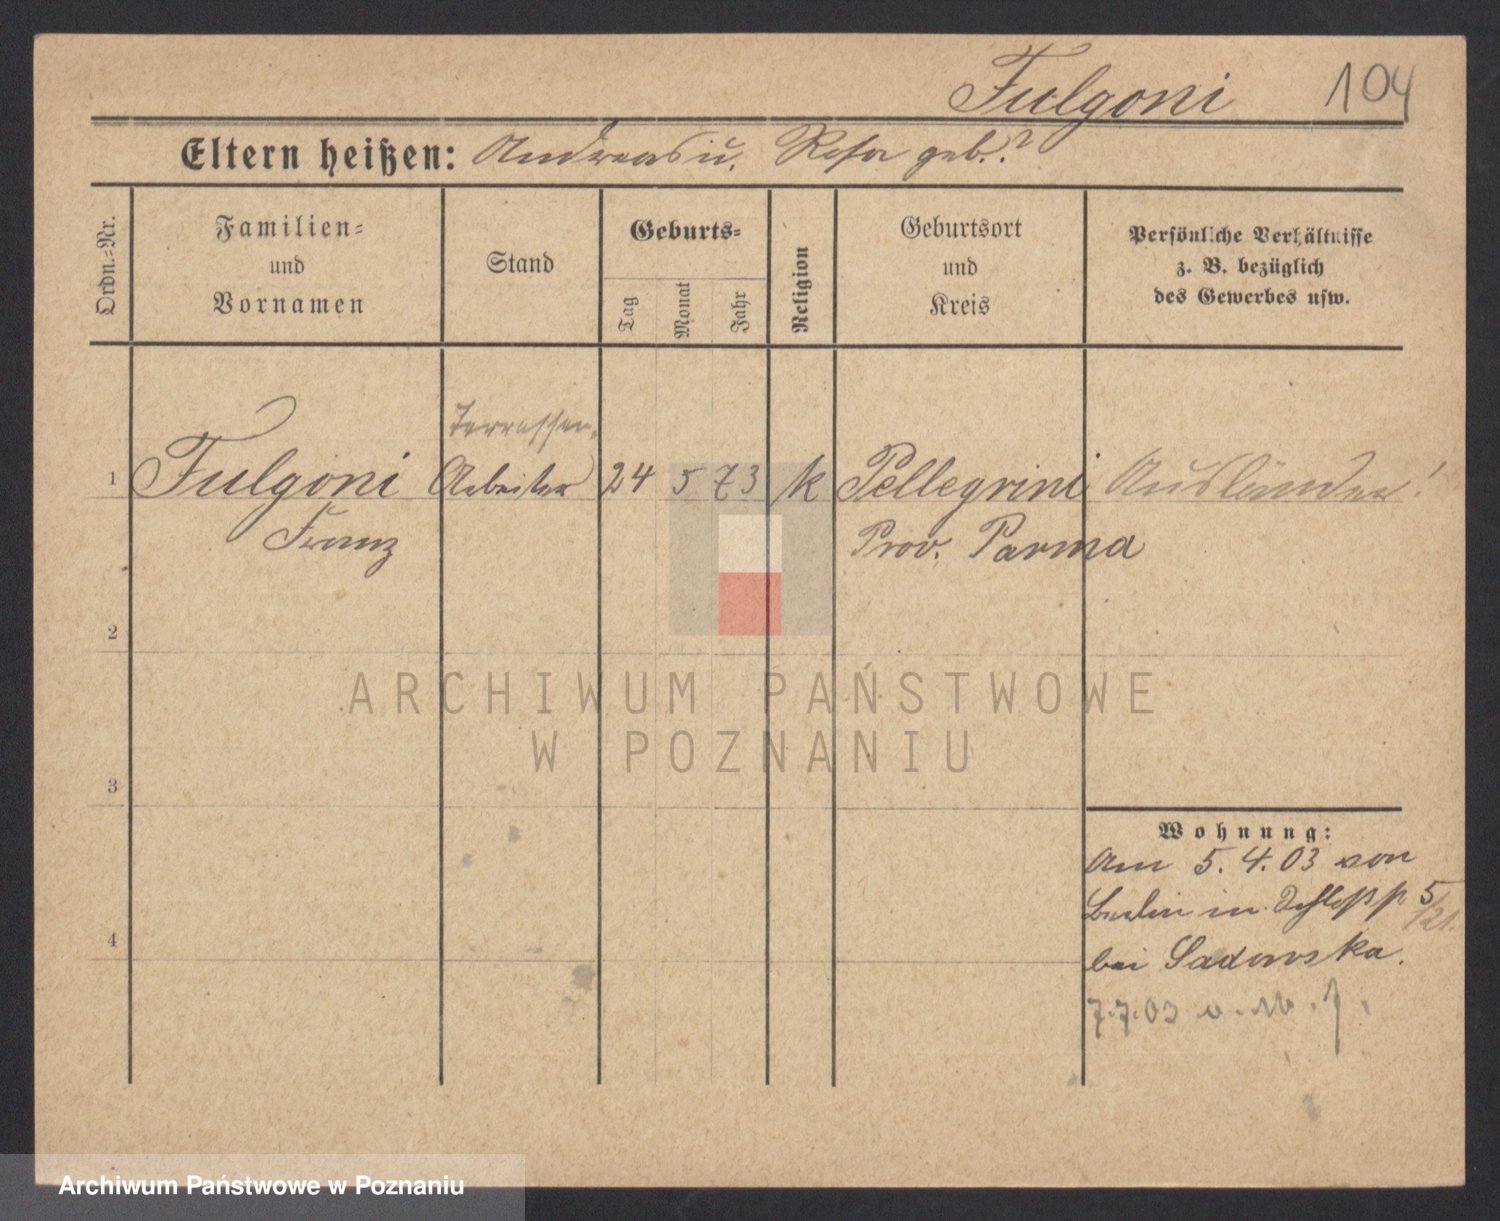 Fulgoni 104
Eltern heißen: Andreas u. Rosa geb. ?
Ordn.-Nr.
Familien-
und
Vornamen
Stand
Geburts-
Tag
Monat
Jahr
Religion
Geburtsort
und
Kreis
Persönliche Verhältnisse
z. B. bezüglich
des Gewerbes usw.
Terrassen.
1 Fulgoni Arbeiter 24 5 73 k Pellegrini Ausländer!
Franz Prov. Parma
2
ARCHIWUM PAŃSTWOWE
W POZNANIU
3
Wohnung:
Am 5. 4. 03 von
Berlin in 5/21.
4
bei Sadowska.
7.7.03
Archiwum Państwowe w Poznaniu